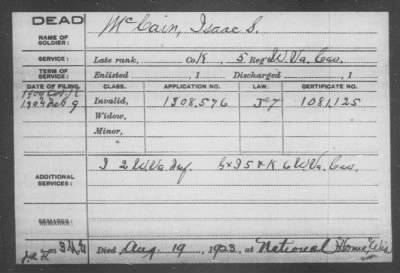 DEAD
NAME OF SOLDIER: McCain, Isaac S.
SERVICE: Late rank, Co. K, 5 Reg't W. Va. Cav.
TERM OF SERVICE: Enlisted , 1 Discharged , 1
DATE OF FILING. CLASS. APPLICATION NO. LAW. CERTIFICATE NO.
1904 Feb 9 Invalid, 1308,576 1081,125
Widow,
Minor,
ADDITIONAL SERVICES: I 2 W. Va. Inf. G & I 5 & K 6 W. Va. Cav.
REMARKS:
Died Aug 19, 1923, at National Home Wis